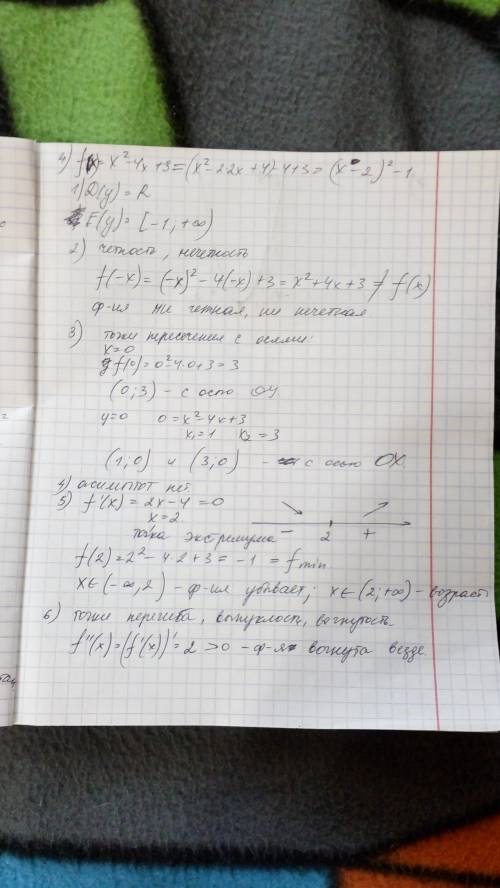 4) f(x)= x²-4x+3=(x²-2·2x+4)-4+3=(x-2)²-1
1) D(y)=R
E(y)=[-1;+∞)
2) четность, нечетность
f(-x)=(-x)²-4(-x)+3=x²+4x+3≠f(x)
ф-ия ни четная, ни нечетная
3) точки пересечения с осями:
x=0
f(0)=0²-4·0+3=3
(0;3) - с осью OY.
y=0 0=x²-4x+3
x₁=1 x₂=3
(1;0) и (3;0) - с осью OX.
4) асимптот нет
5) f'(x)=2x-4=0
x=2
точка экстремума - 2 +
f(2)=2²-4·2+3=-1=fmin
x∈(-∞,2) - ф-ия убывает; x∈(2;+∞) - возраст
6) точки перегиба, выпуклость, вогнутость
f''(x)=(f'(x))'=2>0 - ф-я вогнута везде.